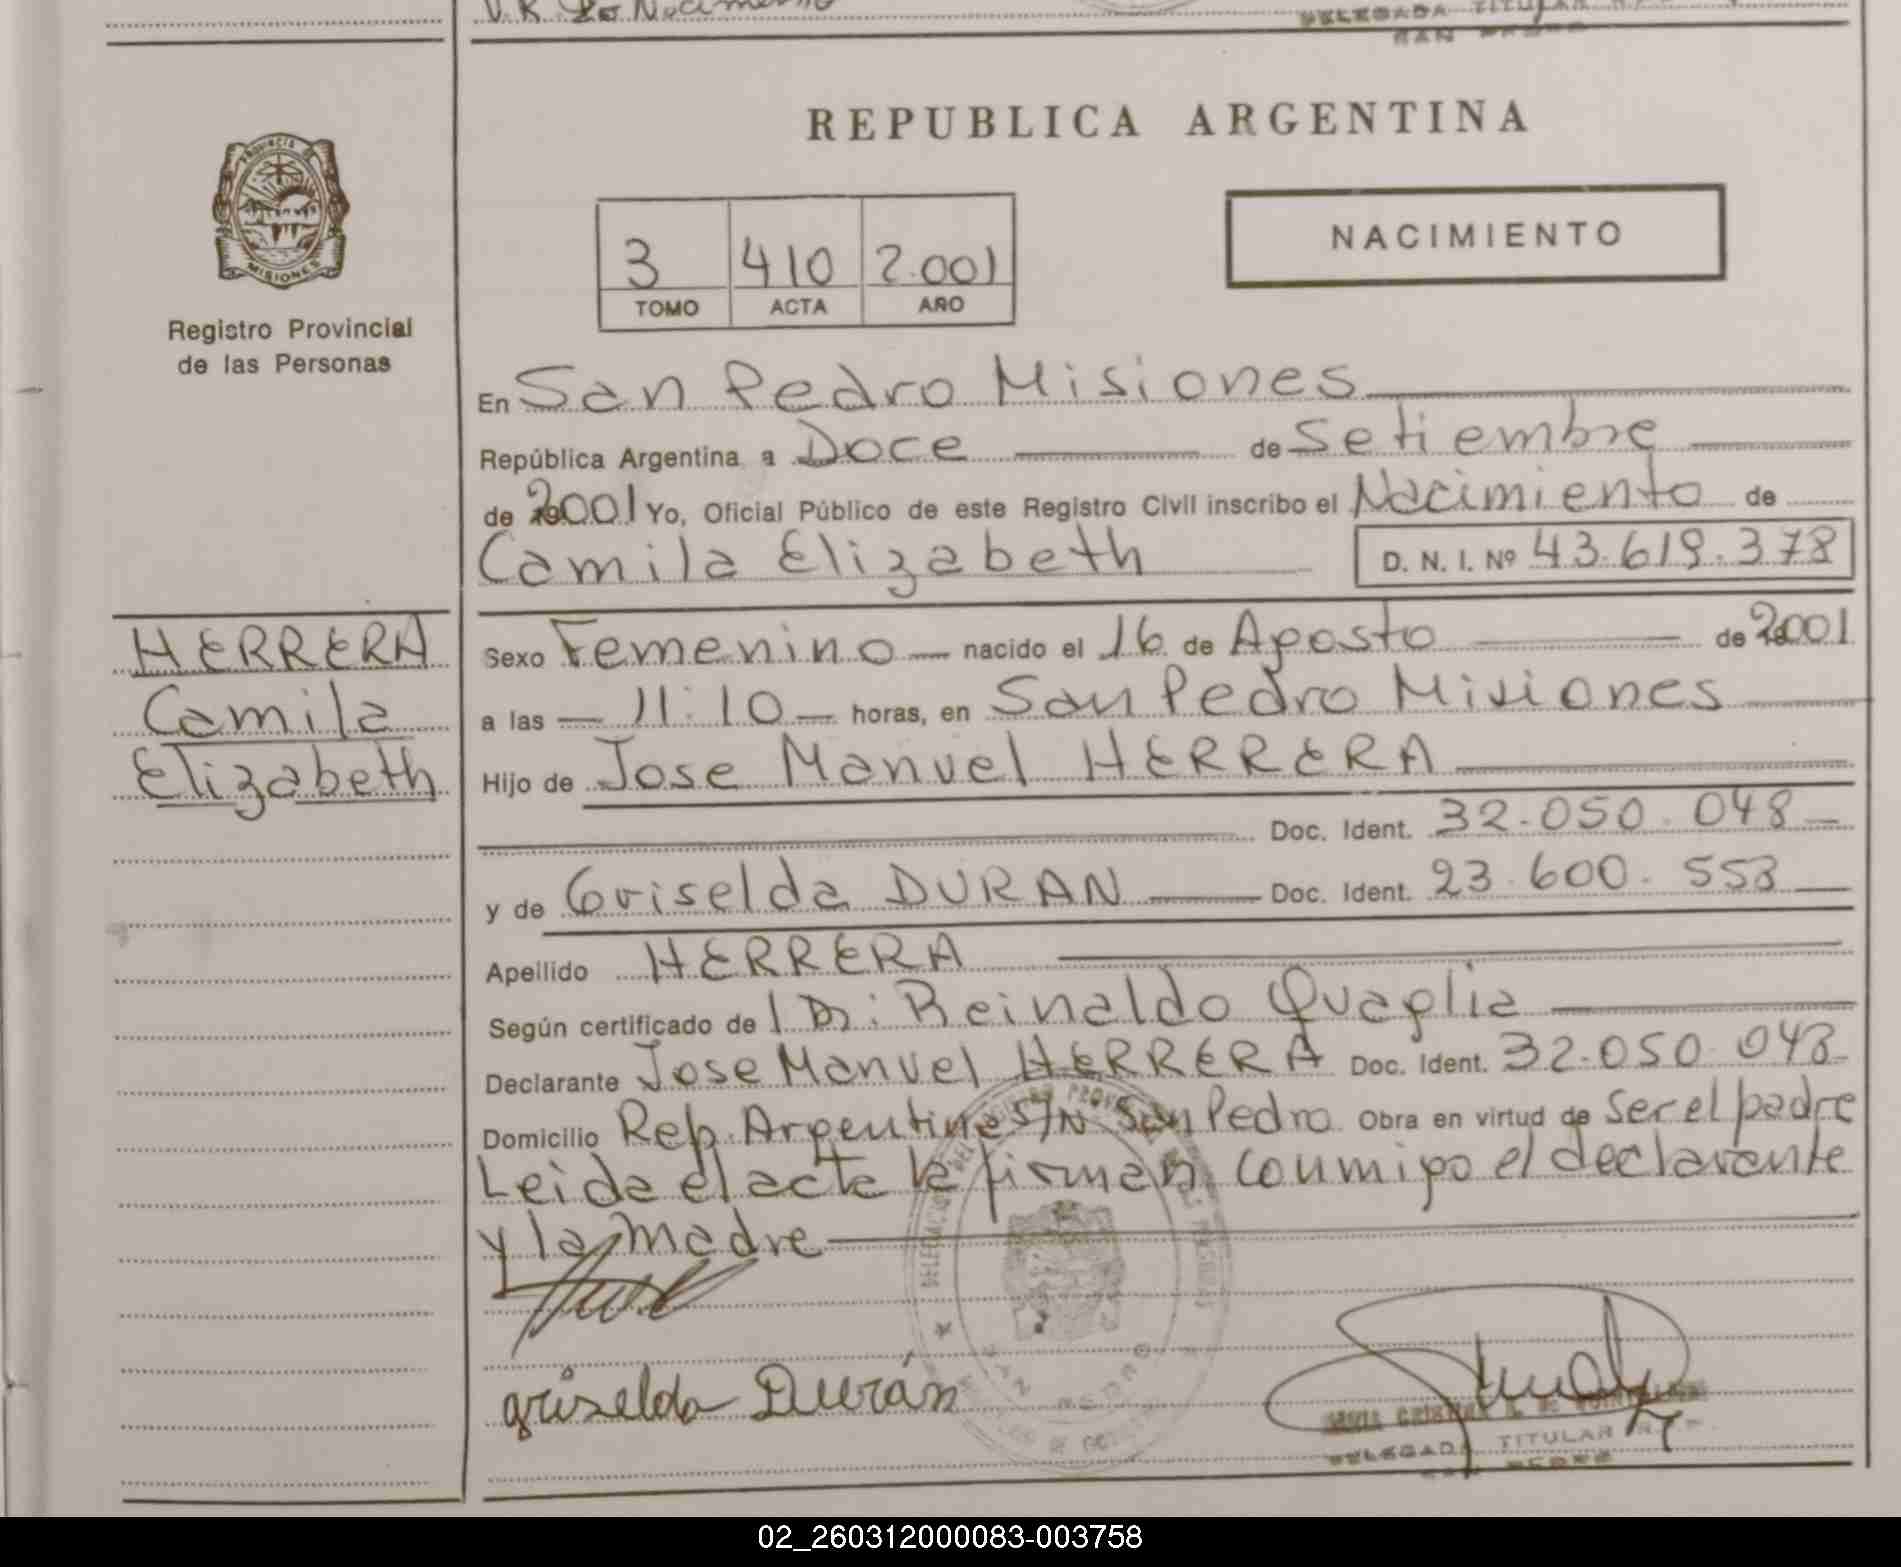 V.R. Nacimiento
DELEGADA TITULAR
SAN PEDRO
REPUBLICA ARGENTINA
PROVINCIA DE
MISIONES
Registro Provincial
de las Personas
3 410 2.001
TOMO ACTA AÑO
NACIMIENTO
En San Pedro Misiones
República Argentina a Doce de Setiembre
de 2001 Yo, Oficial Público de este Registro Civil inscribo el Nacimiento de
Camila Elizabeth D. N. I. Nº 43.619.378
HERRERA
Camila
Elizabeth
Sexo Femenino nacido el 16 de Agosto de 2001
a las 11:10 horas, en San Pedro Misiones
Hijo de Jose Manuel HERRERA
Doc. Ident. 32.050.048
y de Griselda DURAN Doc. Ident. 23.600.553
Apellido HERRERA
Según certificado de Dr: Reinaldo Quaglia
Declarante Jose Manuel HERRERA Doc. Ident. 32.050.048
Domicilio Rep. Argentina S/N San Pedro Obra en virtud de Ser el padre
Leida el acta la firman conmigo el declarante
y la madre
griselda Durán
DELEGADA TITULAR
SAN PEDRO
02_260312000083-003758